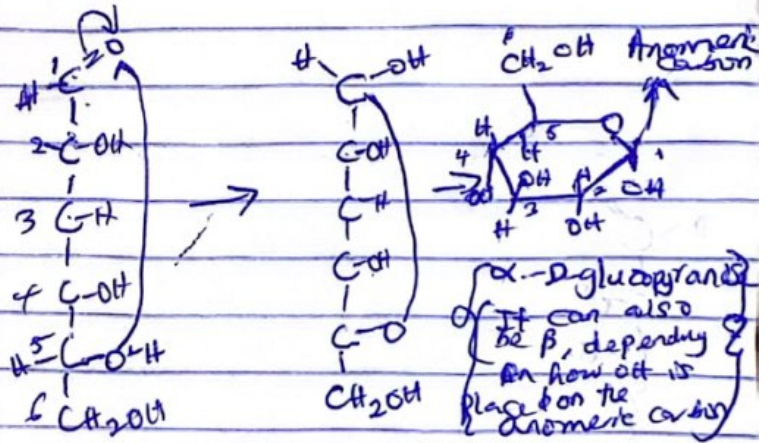 O
1
H C
2 C-OH
3 C-H
4 C-OH
5
H-C-O-H
6 CH2OH
H OH
C
C-OH
C-H
C-OH
C-O
CH2OH
CH2OH Anomeric
carbon
5 O
H
4 H 1
OH OH
H 3 H 2
OH
α-D-glucopyranose
It can also
be β, depending
on how OH is
placed on the
anomeric carbon